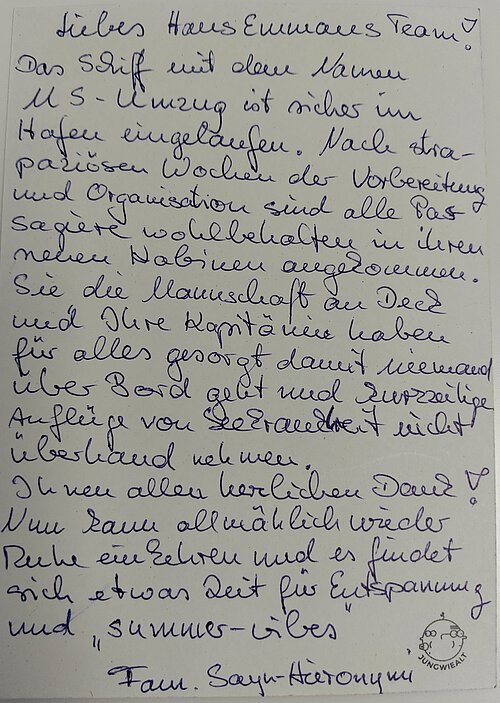 Liebes Haus Emmaus Team!
Das Schiff mit dem Namen
MS-Umzug ist sicher im
Hafen eingelaufen. Nach stra-
paziösen Wochen der Vorbereitung
und Organisation sind alle Pas
sagiere wohlbehalten in ihren
neuen Kabinen angekommen.
Sie die Mannschaft an Deck
und Ihre Kapitänin haben
für alles gesorgt damit niemand
über Bord geht und kurzzeitige
Anflüge von Seekrankheit nicht
überhand nehmen.
Ihnen allen herzlichen Dank!
Nun kann allmählich wieder
Ruhe einkehren und es findet
sich etwas Zeit für Entspannung
und „summer-vibes"
Fam. Sayn-Hieronymi
JUNGWIEALT